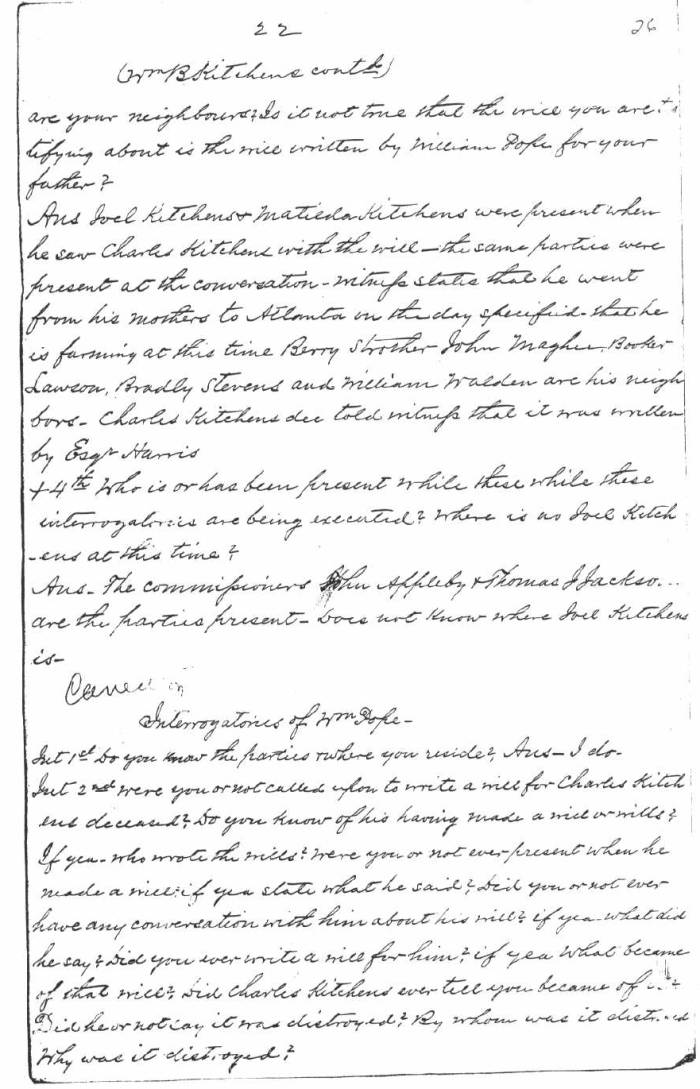 22
26
(Wm B Kitchens contd)
are your neighbours? Is it not true that the will you are tes
tifying about is the will written by William Pope for your
father?
Ans Joel Kitchens & Matilda Kitchens were present when
he saw Charles Kitchens with the will – the same parties were
present at the conversation – Witness states that he went
from his mothers to Atlanta on the day specified – that he
is farming at this time Berry Strother John Maghee, Booker
Lawson, Bradly Stevens and William Walden are his neigh
bors – Charles Kitchens dec told witness that it was written
by Esqr Harris
+ 4th Who is or has been present while these while these
interrogatories are being executed? Where is no Joel Kitch
-ens at this time?
Ans – The commissioners John Appleby & Thomas J Jackso...
are the parties present – Does not know where Joel Kitchens
is –
Interrogatories of Wm Pope –
Int 1st Do you know the parties & where you reside? Ans – I do –
Int 2nd Were you or not called upon to write a will for Charles Kitch
ens deceased? Do you know of his having made a will or wills?
If yea – who wrote the wills? Were you or not ever present when he
made a will; if yea state what he said? Did you or not ever
have any conversation with him about his will? if yea – what did
he say? Did you ever write a will for him? if yea What became
of that will? Did Charles Kitchens ever tell you became of
Did he or not say it was distroyed? By whom was it
Why was it distroyed?